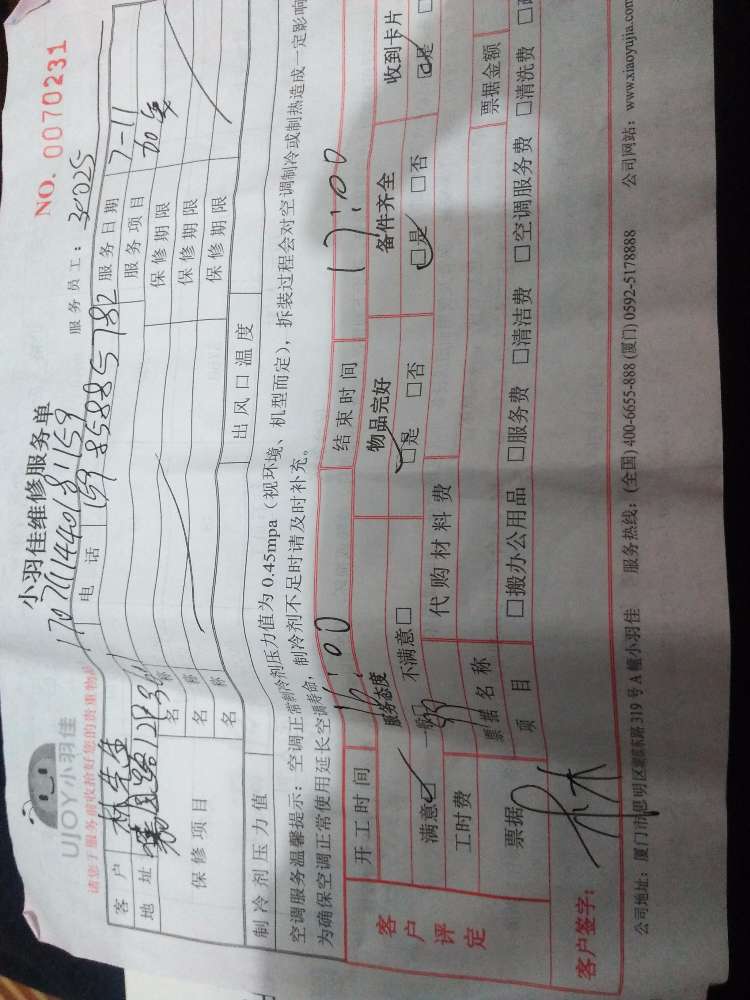 UJOY小羽佳
小羽佳维修服务单
NO. 0070231
请您于服务前收拾好您的贵重物
1707111440181159
服务员工：30025
客户 林先生 电话 15985885782 服务日期 7-11
地址 服务项目
保修项目 名称 保修期限
名称 保修期限
名称 保修期限
制冷剂压力值 出风口温度
空调服务温馨提示：空调正常制冷剂压力值为0.45mpa（视环境、机型而定），拆装过程会对空调制冷或制热造成一定影响
为确保空调正常使用延长空调寿命，制冷剂不足时请及时补充。
开工时间 16:00 结束时间 17:00
客户评定
服务态度 物品完好 备件齐全 收到卡片
满意☑ 一般 不满意□ ☑是 □否 ☑是 □否 ☑是
工时费 代购材料费
票据 票据名称 票据金额
项目 □搬办公用品 □服务费 □清洁费 □空调服务费 □清洗费
客户签字： 林
公司地址：厦门市思明区湖滨东路319号A幢小羽佳 服务热线：(全国) 400-6655-888 (厦门) 0592-5178888 公司网站：www.xiaoyujia.com